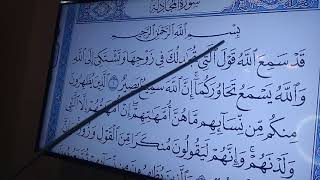 سورة المجادلة
بسم الله الرحمن الرحيم
قد سمع الله قول التي تجادلك في زوجها وتشتكي إلى الله
والله يسمع تحاوركما إن الله سميع بصير الذين يظهرون
منكم من نسائهم ما هن أمهتهم إن أمهتهم إلا الـي
ولدنهم وإنهم ليقولون منكرا من القول وزورا